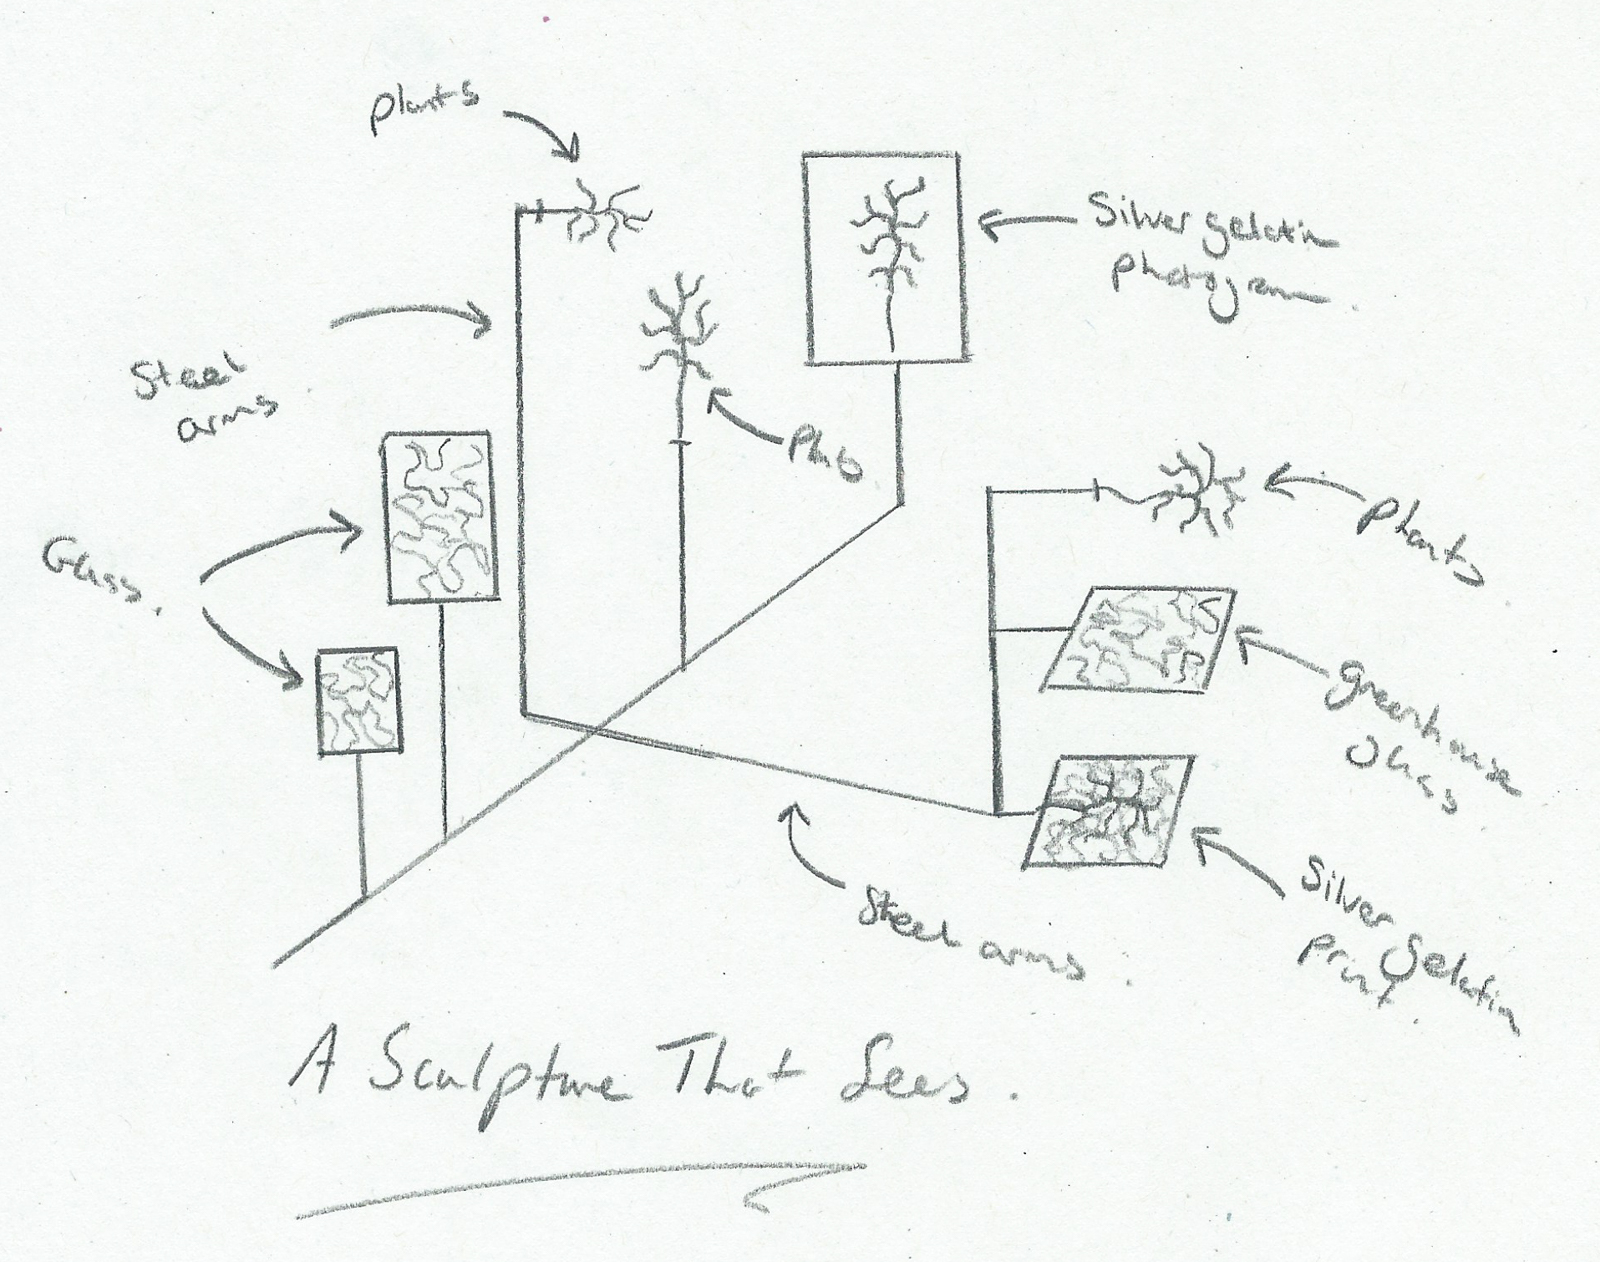 plants
Silver gelatin
photogram.
Steel
arms
Plants
Glass.
Plants
greenhouse
glass
Silver Gelatin
Print.
Steel arms.
A Sculpture That Sees.